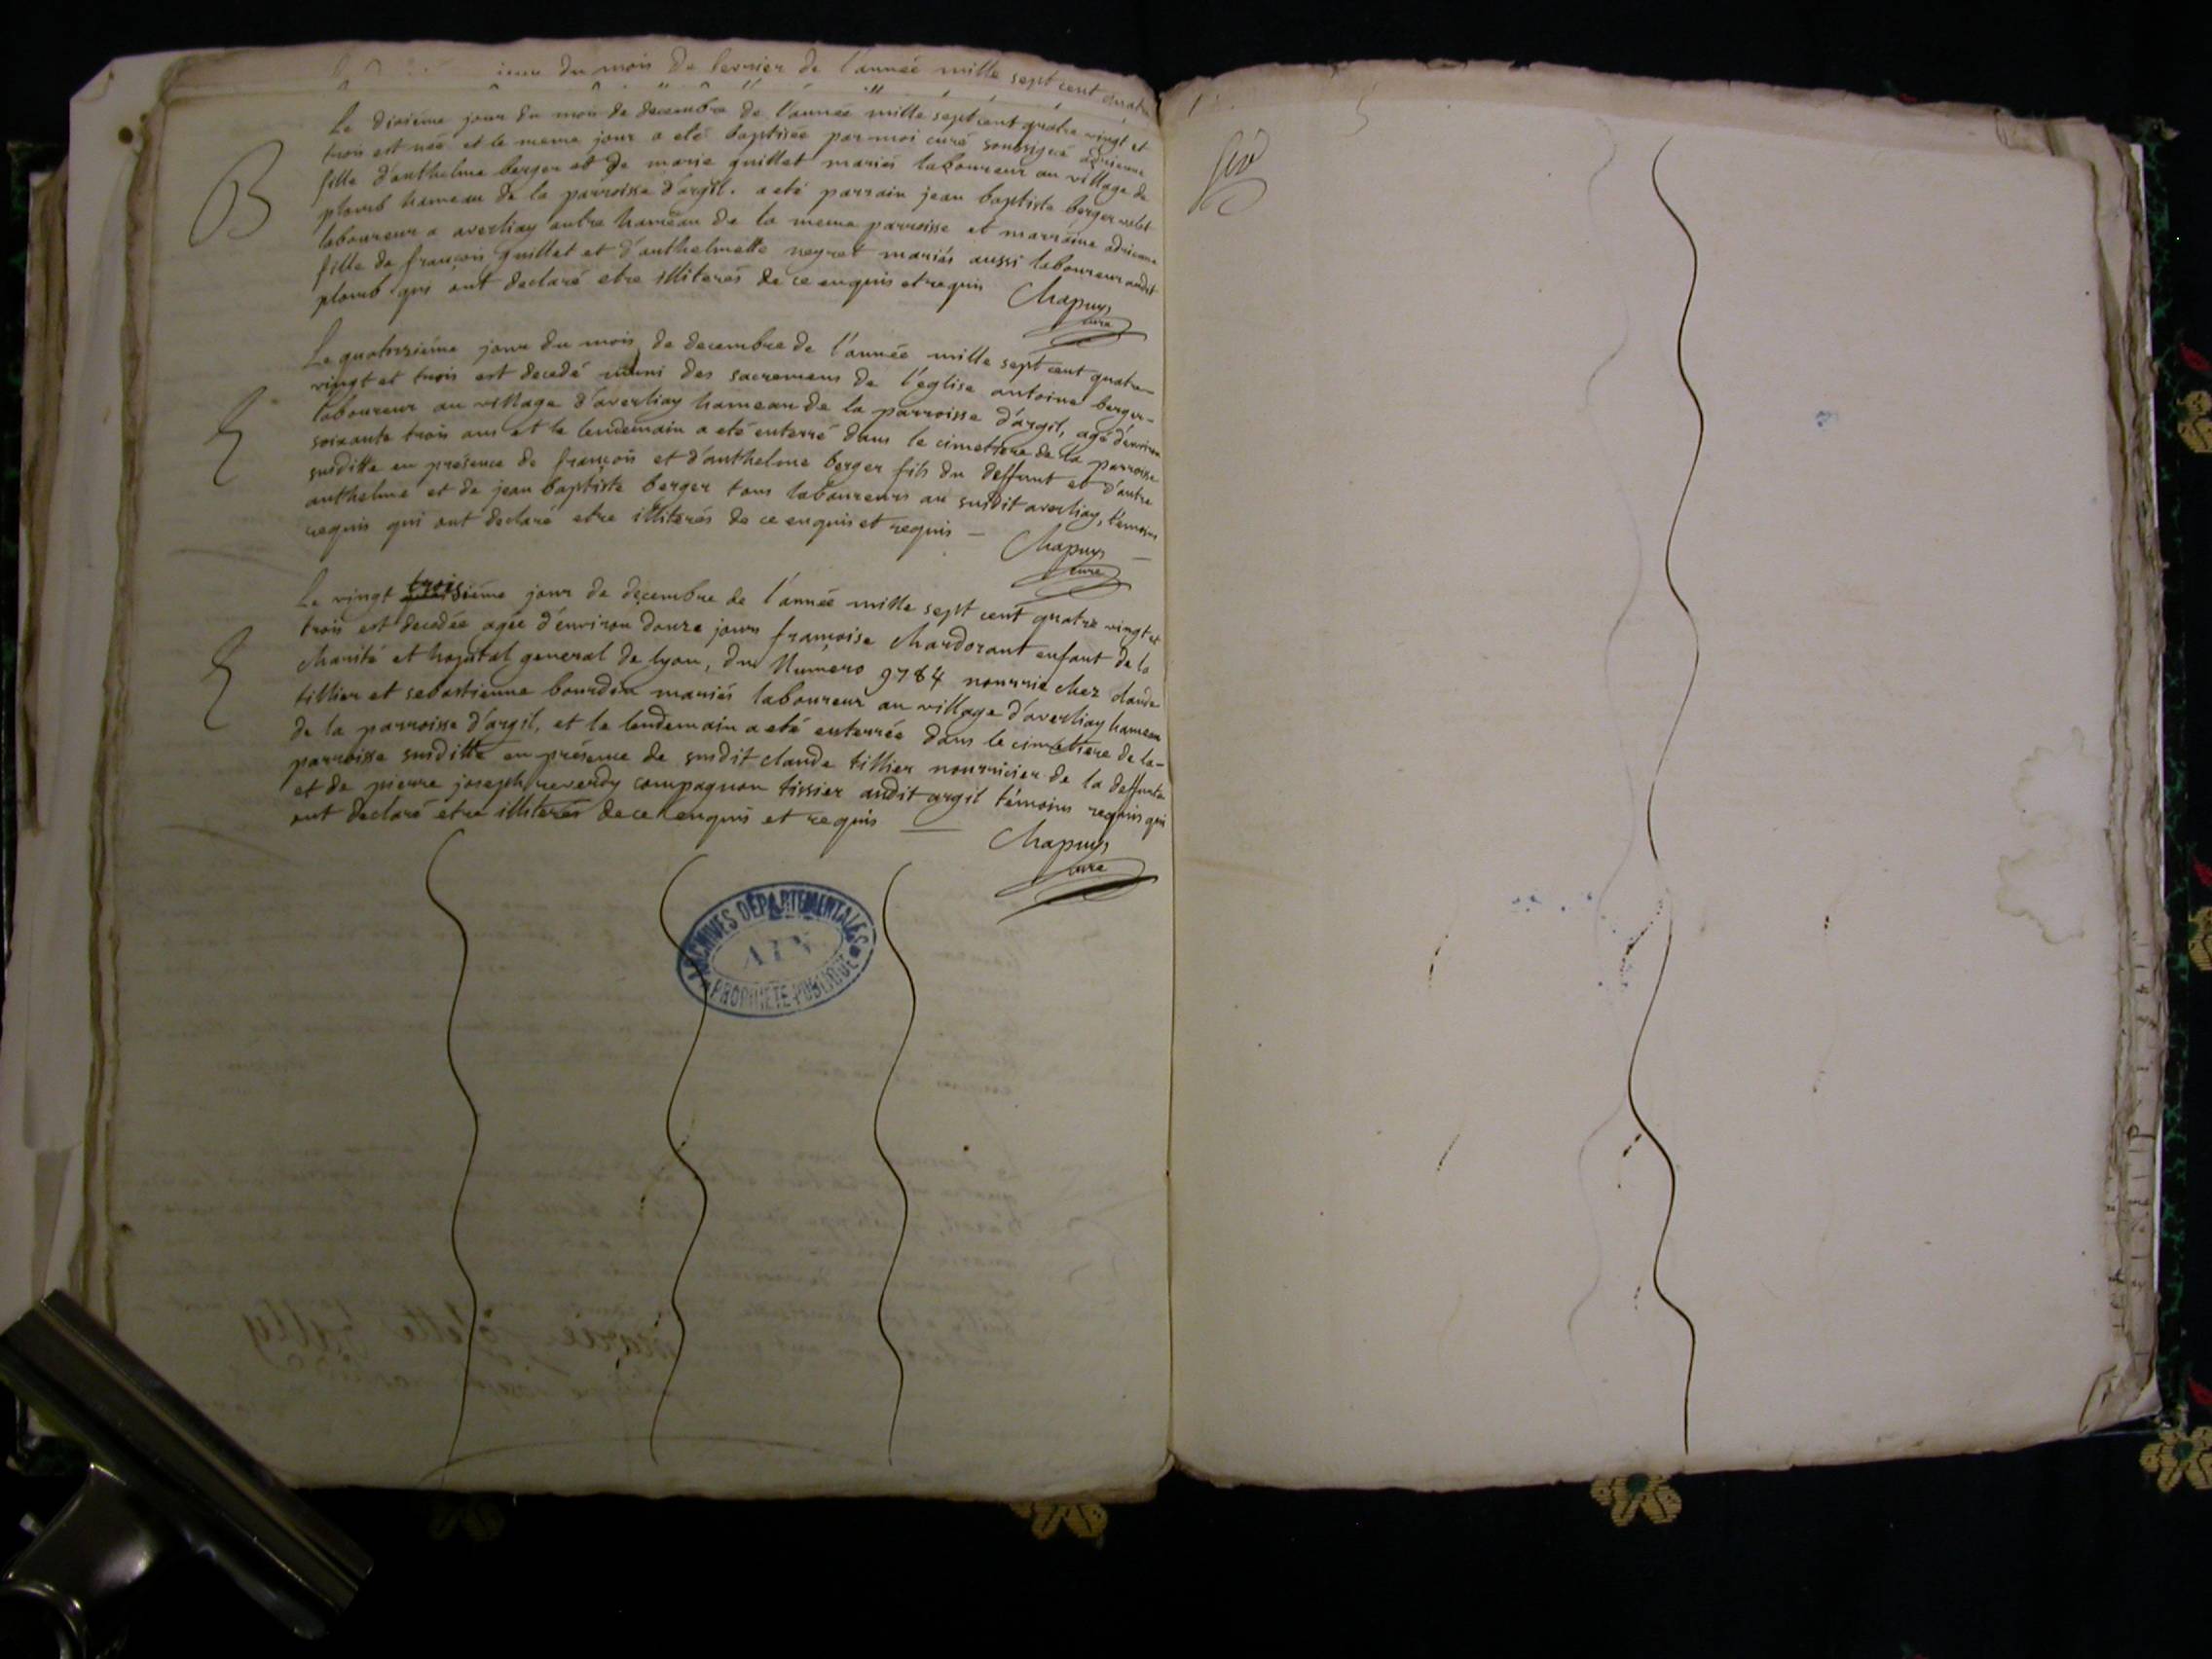 du mois de fevrier de l'année mille sept cent quatre
Le dixiéme jour du mois de decembre de l'année mille sept cent quatre vingt et
trois est née et le meme jour a eté baptisée par moi curé soussigné adrienne
fille d'anthelme berger et de marie guillet mariés laboureur au village de
plomb hameau de la parroisse d'argil. a eté parrain jean baptiste berger valet
laboureur a averliay autre hameau de la meme parroisse et marraine adrienne
fille de françois guillet et d'anthelmette neyret mariés aussi laboureur audit
plomb qui ont declaré etre illiterés de ce enquis et requis Chapuys
curé
B
Le quatorziéme jour du mois de decembre de l'année mille sept cent quatre-
vingt et trois est decedé muni des sacremens de l'église antoine berger-
laboureur au village d'averliay hameau de la parroisse d'argil, agé d'environ
soixante trois ans et le lendemain a eté enterré dans le cimetiere de la parroisse
suditte en présence de françois et d'anthelme berger fils du deffunt et d'autre
anthelme et de jean baptiste berger tous laboureurs au susdit averliay, témoins
requis qui ont declaré etre illiterés de ce enquis et requis — Chapuys —
curé
Le vingt troisiéme jour de decembre de l'année mille sept cent quatre vingt et
trois est decedée agée d'environ douze jours françoise Chardorant enfant de la
charité et hopital general de lyon, du Numero 9784 nourrie chez claude
tillier et sebastienne bourdin mariés laboureur au village d'averliay hameau
de la parroisse d'argil, et le lendemain a eté enterrée dans le cimetiere de la-
parroisse suditte en présence de susdit claude tillier nourricier de la deffunte
et de pierre joseph reverdy compagnon tissier audit argil témoins requis qui
ont declaré etre illiterés de ce enquis et requis — Chapuys
curé
ARCHIVES DÉPARTEMENTALES
AIN
PROPRIÉTÉ PUBLIQUE